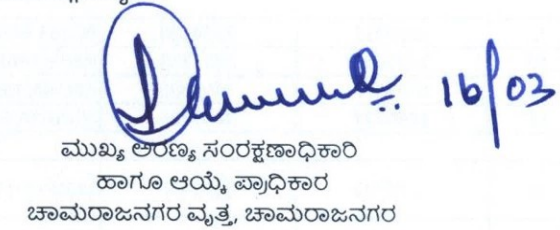 16/03
ಮುಖ್ಯ ಅರಣ್ಯ ಸಂರಕ್ಷಣಾಧಿಕಾರಿ
ಹಾಗೂ ಆಯ್ಕೆ ಪ್ರಾಧಿಕಾರ
ಚಾಮರಾಜನಗರ ವೃತ್ತ, ಚಾಮರಾಜನಗರ